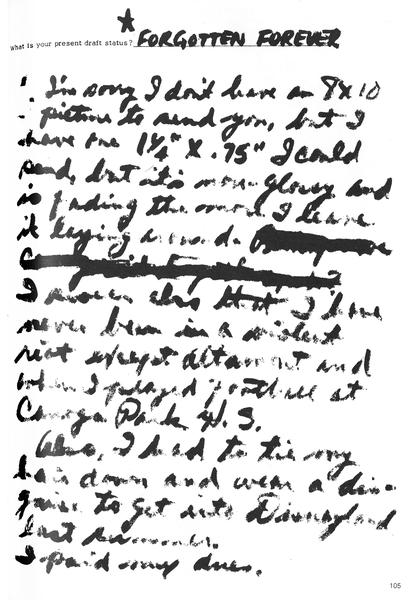 What is your present draft status? * FORGOTTEN FOREVER
I'm sorry I don't have an 8x10
picture to send you, but I
have one 1 1/4" X .75" I could
send, but it's non-glossy and
is fading the more I leave
it laying around.
I swear also that I have
never been in a violent
riot except Altamont and
when I played football at
Canoga Park H.S.
Also, I had to tie my
hair down and wear a dis-
guise to get into Disneyland
last summer.
I paid my dues.
105